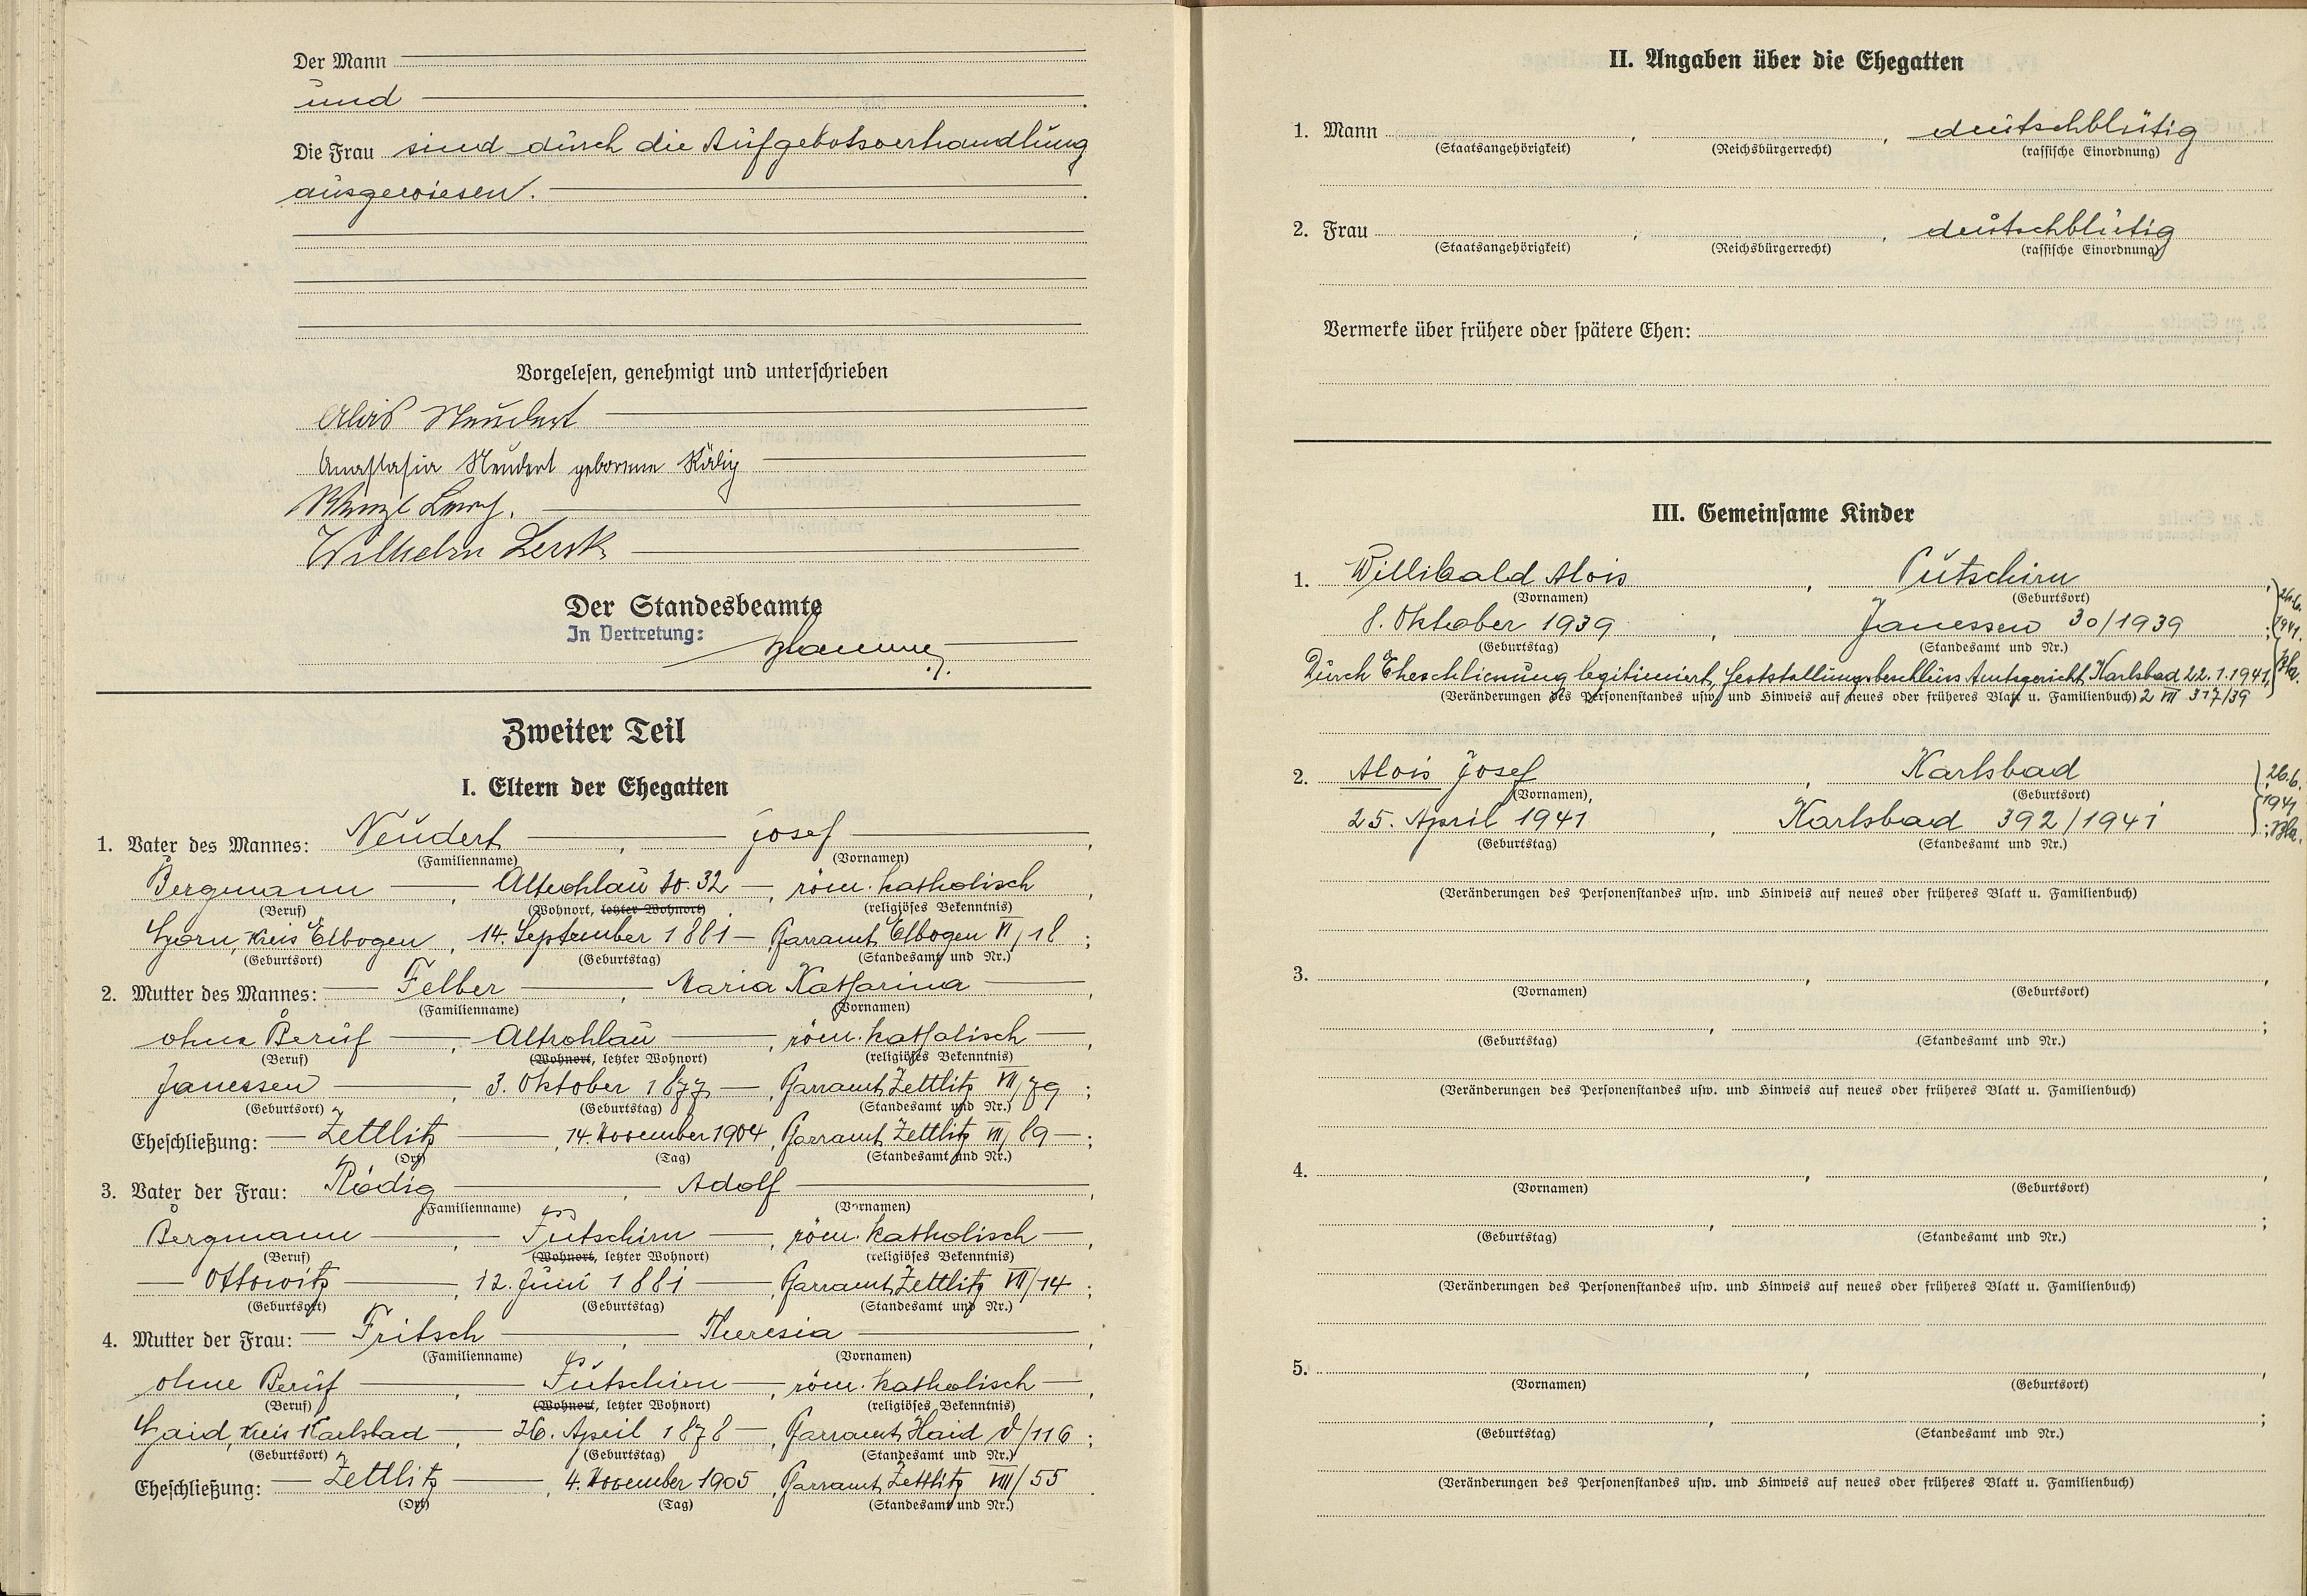 Der Mann
und
Die Frau sind durch die Aufgebotsverhandlung
ausgewiesen.
Vorgelesen, genehmigt und unterschrieben
Alois Neudert
Anastasia Neudert geborene Rödig
Wilhelm Lenk
Der Standesbeamte
In Vertretung:
Zweiter Teil
I. Eltern der Ehegatten
1. Vater des Mannes: Neudert, Josef,
(Familienname) (Vornamen)
Bergmann, Altrohlau 10.32, röm. katholisch,
(Beruf) (Wohnort, letzter Wohnort) (religiöses Bekenntnis)
Horn, Kreis Elbogen, 14. September 1881, Pfarramt Elbogen VI/18;
(Geburtsort) (Geburtstag) (Standesamt und Nr.)
2. Mutter des Mannes: Felber, Maria Katharina,
(Familienname) (Vornamen)
ohne Beruf, Altrohlau, röm. katholisch,
(Beruf) (Wohnort, letzter Wohnort) (religiöses Bekenntnis)
Janessen, 3. Oktober 1877, Pfarramt Zettlitz VII/79;
(Geburtsort) (Geburtstag) (Standesamt und Nr.)
Eheschließung: Zettlitz, 14. November 1904, Pfarramt Zettlitz VIII/89;
(Ort) (Tag) (Standesamt und Nr.)
3. Vater der Frau: Rödig, Adolf,
(Familienname) (Vornamen)
Bergmann, Putschirn, röm. katholisch,
(Beruf) (Wohnort, letzter Wohnort) (religiöses Bekenntnis)
Ottowitz, 12. Juni 1881, Pfarramt Zettlitz VII/14;
(Geburtsort) (Geburtstag) (Standesamt und Nr.)
4. Mutter der Frau: Fritsch, Theresia,
(Familienname) (Vornamen)
ohne Beruf, Putschirn, röm. katholisch,
(Beruf) (Wohnort, letzter Wohnort) (religiöses Bekenntnis)
Haid, Kreis Karlsbad, 26. April 1878, Pfarramt Haid /116;
(Geburtsort) (Geburtstag) (Standesamt und Nr.)
Eheschließung: Zettlitz, 4. November 1905, Pfarramt Zettlitz VIII/55.
(Ort) (Tag) (Standesamt und Nr.)
II. Angaben über die Ehegatten
1. Mann , , deutschblütig
(Staatsangehörigkeit) (Reichsbürgerrecht) (rassische Einordnung)
2. Frau , , deutschblütig
(Staatsangehörigkeit) (Reichsbürgerrecht) (rassische Einordnung)
Vermerke über frühere oder spätere Ehen:
III. Gemeinsame Kinder
1. Willibald Alois, Putschirn,
(Vornamen) (Geburtsort)
8. Oktober 1939, Janessen 30/1939;
(Geburtstag) (Standesamt und Nr.)
Durch Eheschliessung legitimiert, Feststellungsbeschluss Amtsgericht Karlsbad 22.1.1941,
(Veränderungen des Personenstandes usw. und Hinweis auf neues oder früheres Blatt u. Familienbuch) 2 VII 317/39
26.6.
1941.
Bla.
2. Alois Josef, Karlsbad,
(Vornamen) (Geburtsort)
25. April 1941, Karlsbad 392/1941;
(Geburtstag) (Standesamt und Nr.)
26.6.
1941
Bla.
(Veränderungen des Personenstandes usw. und Hinweis auf neues oder früheres Blatt u. Familienbuch)
3. , ,
(Vornamen) (Geburtsort)
, ;
(Geburtstag) (Standesamt und Nr.)
(Veränderungen des Personenstandes usw. und Hinweis auf neues oder früheres Blatt u. Familienbuch)
4. , ,
(Vornamen) (Geburtsort)
, ;
(Geburtstag) (Standesamt und Nr.)
(Veränderungen des Personenstandes usw. und Hinweis auf neues oder früheres Blatt u. Familienbuch)
5. , ,
(Vornamen) (Geburtsort)
, ;
(Geburtstag) (Standesamt und Nr.)
(Veränderungen des Personenstandes usw. und Hinweis auf neues oder früheres Blatt u. Familienbuch)